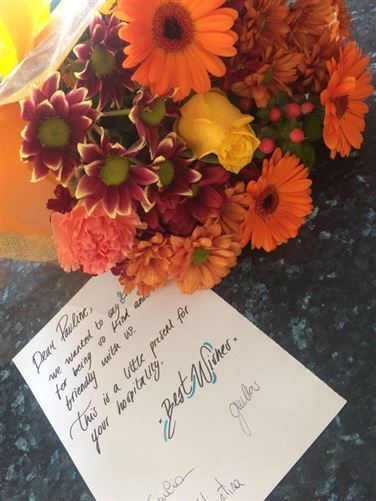 Dear Pauline,
we wanted to say
for being so kind and
friendly with us.
This is a little present for
your hospitality.
"Best Wishes"
Giulia